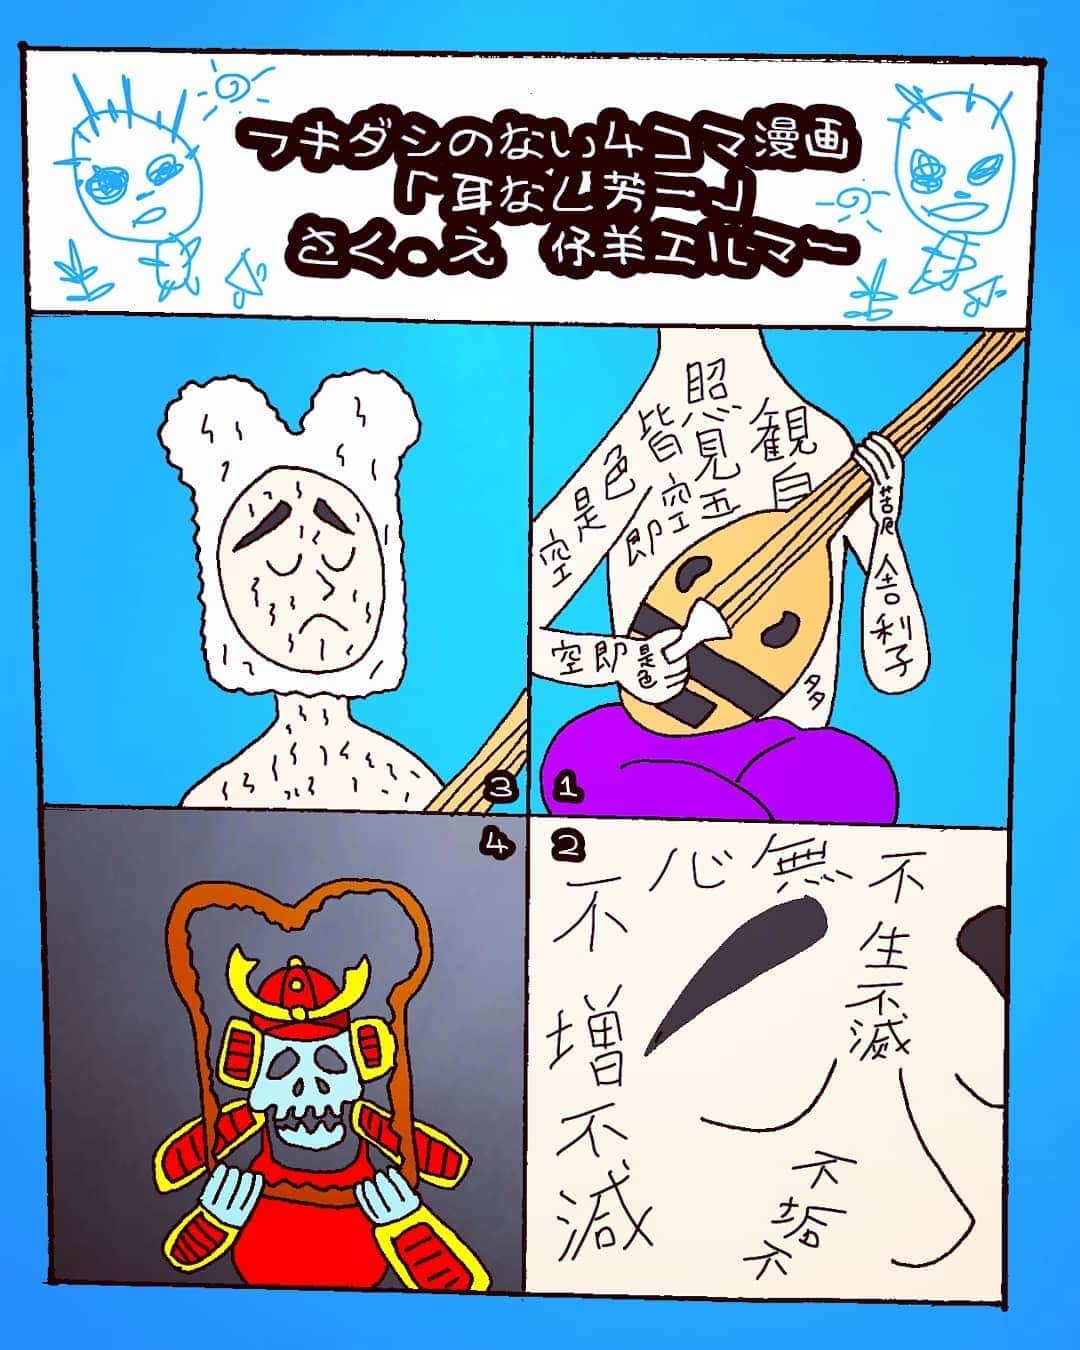 フキダシのない4コマ漫画
「耳なし芳一」
さく・え 仔羊エルマー
1
観自
照見五
皆空
色
即
是
空
空即是色
苦厄
舎利子
多
2
不生不滅
無
心
不垢不
不増不減
3
4